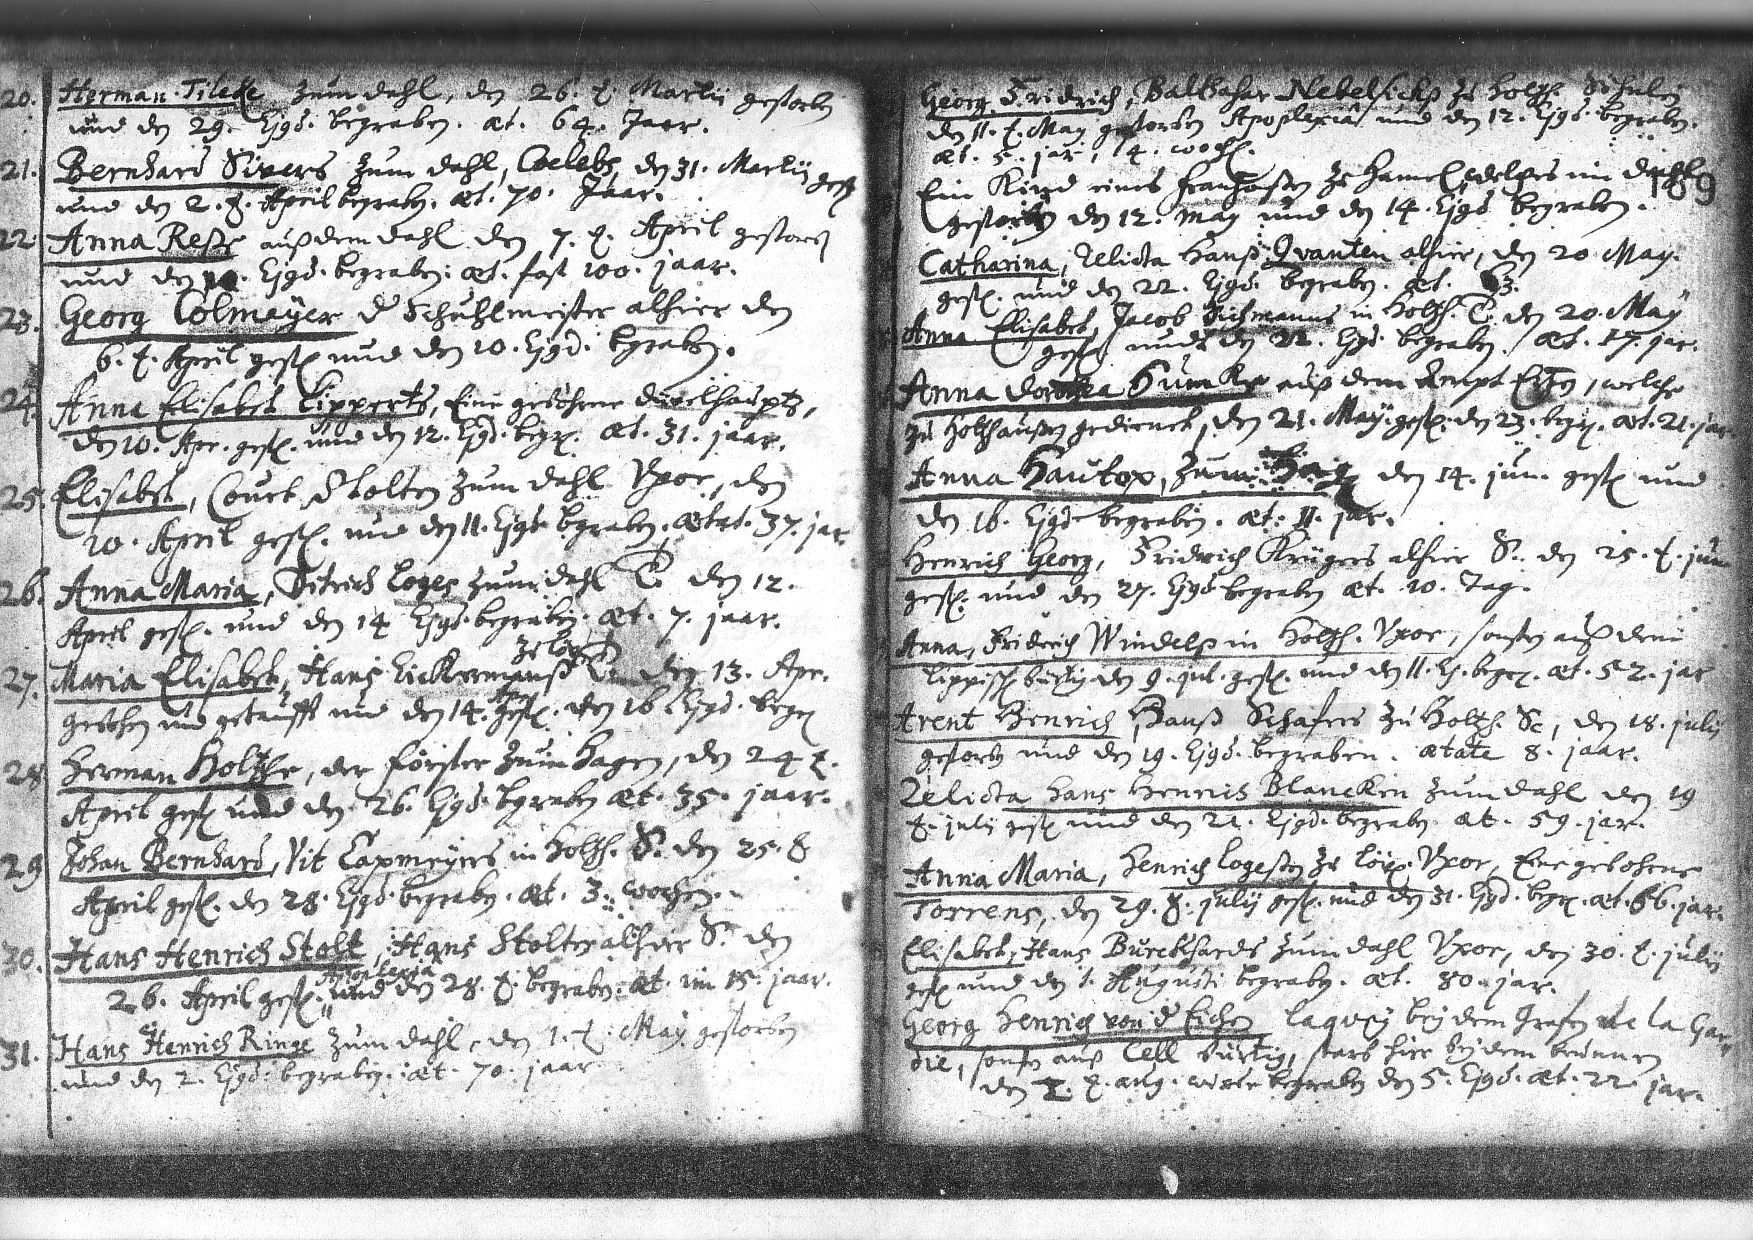 20. Herman Tileke zum dahl, den 26. t. Martij gestorben
und den 29. Ejgd. begraben. æt. 64. Jaar.
21. Bernhard Sivers zum dahl, Coelebs, den 31. Martij gest.
und den 2. t. April begraben. æt. 70. Jaar.
22. Anna Reße auß dem dahl den 7. t. April gestorben
und den Ejgd. begraben. æt. fast 100. jaar.
23. Georg Colmeyer d Schuhlmeister alhier den
6. t. April gest. und den 10. Ejgd. begraben.
24. Anna Elisabet Lipperts, Eine gebohrne
den 10. Apr. gest. und den 12. Ejgd. begr. æt. 31. jaar.
25. Elisabet, Court Stolten zum dahl Uxor, den
10. April gest. und den 11. Ejgd. begraben. ætat. 37. jar
26. Anna Maria, Ditrich Loges zum dahl T. den 12.
April gest. und den 14 Ejgd. begraben. æt. 7. jaar.
27. Maria Elisabet, Hans Eickermanß T. den 13. Apr.
gebohrn und getaufft und den 14. gest. den 16. Ejgd. begr
28 Herman Holtzhe, der förster zum Hagen, den 24 t.
April gest. und den 26. Ejgd. begraben æt. 35. jaar.
29 Johan Bernhard, Vit Tapmeyers in Holtzh. S. den 25. t
April gest. den 28. Ejgd. begraben. æt. 3. wochen.
30. Hans Henrich Stolt, Hans Stolten alhier S. den
Apoplexia
26. April gest. und den 28. t. begraben. æt. im 15. jaar.
31. Hans Henrich Ringe zum dahl, den 1. t. May gestorben
und den 2. Ejgd. begraben. æt. 70. jaar
Georg Fridrich, Balthasar Nebelsicks zu Holtzh.
den 11. t. May gestorben Apoplexia und den 12. Ejgd. begraben.
æt. 5. jar, 4. woch.
189
Ein Kind eines frantzosen zu Hameln,
gestorben den 12. may und den 14. Ejgd begraben.
Catharina, Relicta Hanß Qvanten alhier, den 20 May.
gest. und den 22. Ejgd. begraben. æt. 63.
Anna Elisabet, Jacob in Holtzh. T. den 20. May
gest. und den 22. Ejgd. begraben. æt. 17. jar.
Anna Dorothea Humke auß dem Ampt, welche
zu Holtzhausen gedienet, den 21. May gest. den 23. begr. æt. 21. jar.
Anna Hautop, zum den 14. jun. gest. und
den 16. Ejgd. begraben. æt. 11. jar.
Henrich Georg, Fridrich Krügers alhier S. den 25. t. jun
gest. und den 27. Ejgd. begraben æt. 10. Tag.
Anna, Fridrich Windelß in Holtzh. Uxor, sonsten auß dem
Lippisch. bürtig den 9. jul. gest. und den 11. Ej. begr. æt. 52. jar
Arent Henrich, Hanß Schäfers zu Holtzh. S, den 18. julij
gestorben und den 19. Ejgd. begraben. ætate 8. jaar.
Relicta Hans Henrich Blancken zum dahl den 19
t. julij gest. und den 21. Ejgd. begraben. æt. 59. jar.
Anna Maria, Henrich Logesten zu Uxor, Eine gebohrne
Torrens, den 29. t. julij gest. und den 31. Ejgd. begr. æt. 66. jar.
Elisabet, Hans Burckhards zum dahl Uxor, den 30. t. julij
gest. und den 1. Augusti begraben. æt. 80. jar.
Georg Henrich von d Eichen Laqvey bey dem Grafen de la Gar
die, sonst auß Cell bürtig, starb hier bey dem brunnen
den t. aug. begraben den 5. Ejgd. æt. 22 jar.